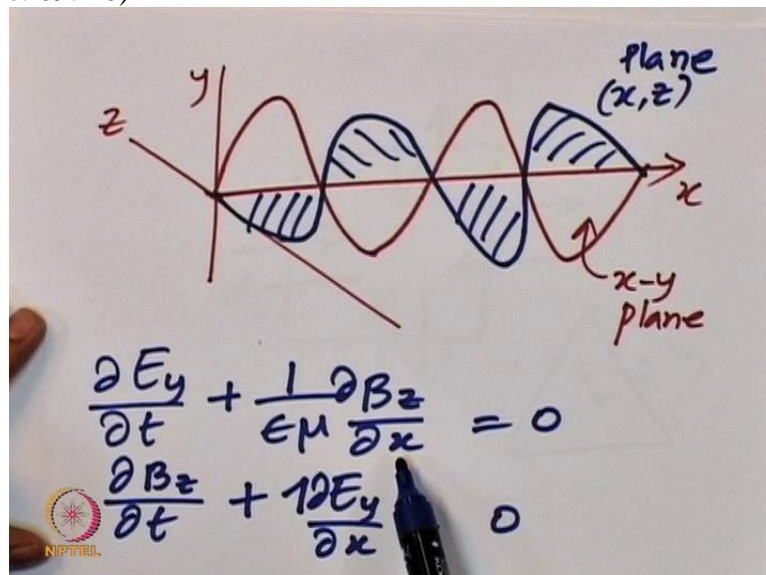 plane
(x, z)
y
z
x
x-y
plane
∂Ey/∂t + 1/ϵμ ∂Bz/∂x = 0
∂Bz/∂t + 1∂Ey/∂x 0
NPTEL